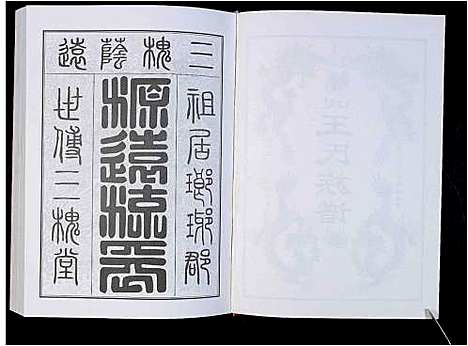 三槐蔭遠
祖居瑯琊郡
源遠流長
世傳三槐堂
王氏族譜